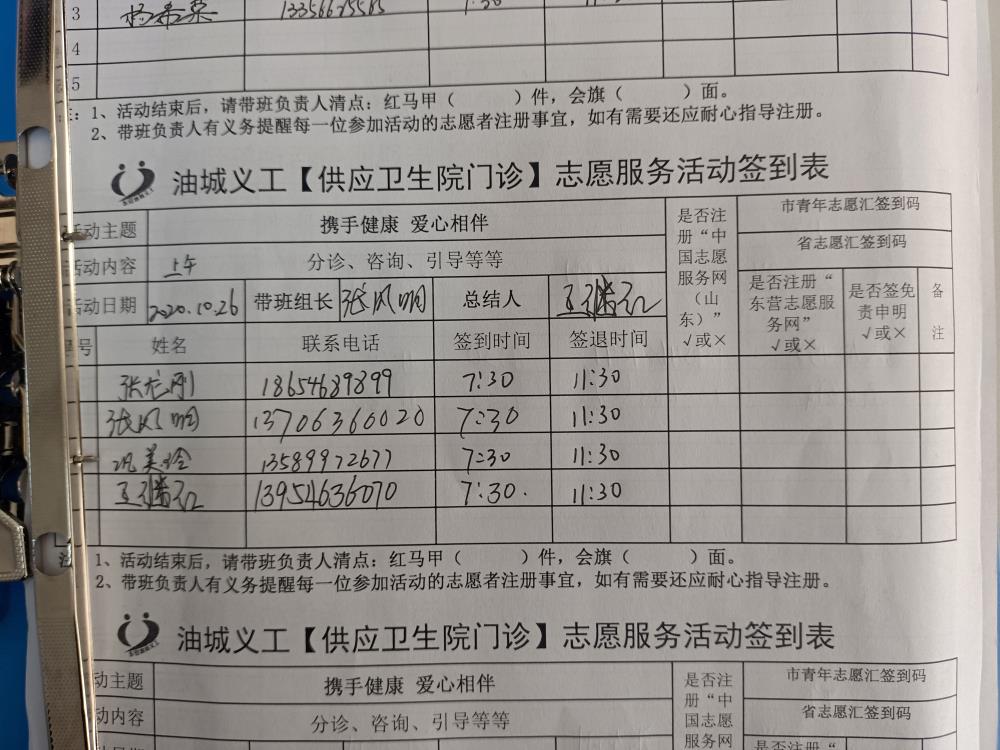 3 杨希荣 13356675585 7:30
4
5
1、活动结束后，请带班负责人清点：红马甲（ ）件，会旗（ ）面。
2、带班负责人有义务提醒每一位参加活动的志愿者注册事宜，如有需要还应耐心指导注册。
油城义工【供应卫生院门诊】志愿服务活动签到表
活动主题 携手健康 爱心相伴 是否注册“中国志愿服务网（山东）”√或× 市青年志愿汇签到码
活动内容 上午 分诊、咨询、引导等等 省志愿汇签到码
活动日期 2020.10.26 带班组长 张凤明 总结人 是否注册“东营志愿服务网”√或× 是否签免责申明√或× 备注
号 姓名 联系电话 签到时间 签退时间
张龙刚 18654689899 7:30 11:30
张凤明 13706360020 7:30 11:30
巩美玲 13589972677 7:30 11:30
13954636070 7:30. 11:30
注 1、活动结束后，请带班负责人清点：红马甲（ ）件，会旗（ ）面。
2、带班负责人有义务提醒每一位参加活动的志愿者注册事宜，如有需要还应耐心指导注册。
油城义工【供应卫生院门诊】志愿服务活动签到表
动主题 携手健康 爱心相伴 是否注册“中国志愿服务网 市青年志愿汇签到码
动内容 分诊、咨询、引导等等 省志愿汇签到码
是否注册“